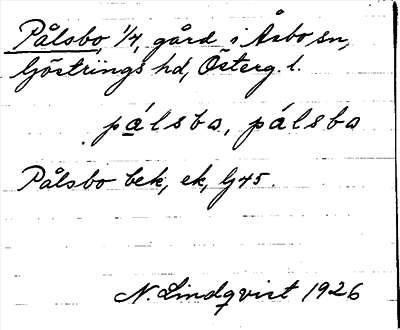 Pålsbo, 1/4, gård i Åsbo sn,
Göstrings hd, Österg. l.
pálsba, pálsba
Pålsbo bek, ek, Gj45.
N. Lindqvist 1926